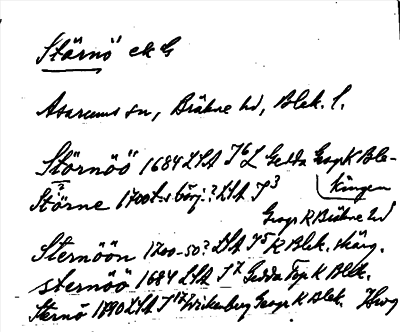 Stärnö ek G
Asarums sn, Bräkne hd, Blek. l.
Störnöö 1684 LSA J6 L Gedda Geogr K Ble-
kingen
Störne 1700t-s börj.? LSA J3
Geogr K Bräkne hd
Sternöön 1700-50? LSA J5 K Blek. skärg.
sternöö 1684 LSA J7 Gedda Top K Blek.
Sternö 1790 LSA J17 Wickenberg Geogr K Blek.